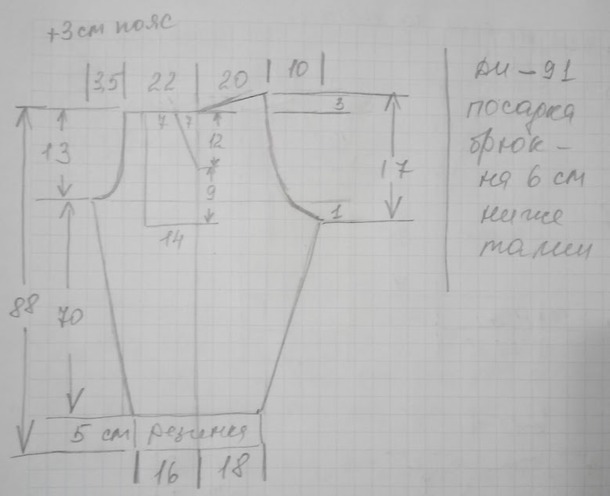 +3см пояс
3,5 22 20 10
ДИ-91
посадка
брюк -
на 6 см
ниже
талии
7 7
3
13
12
17
9
1
14
88
70
5 см резинка
16 18